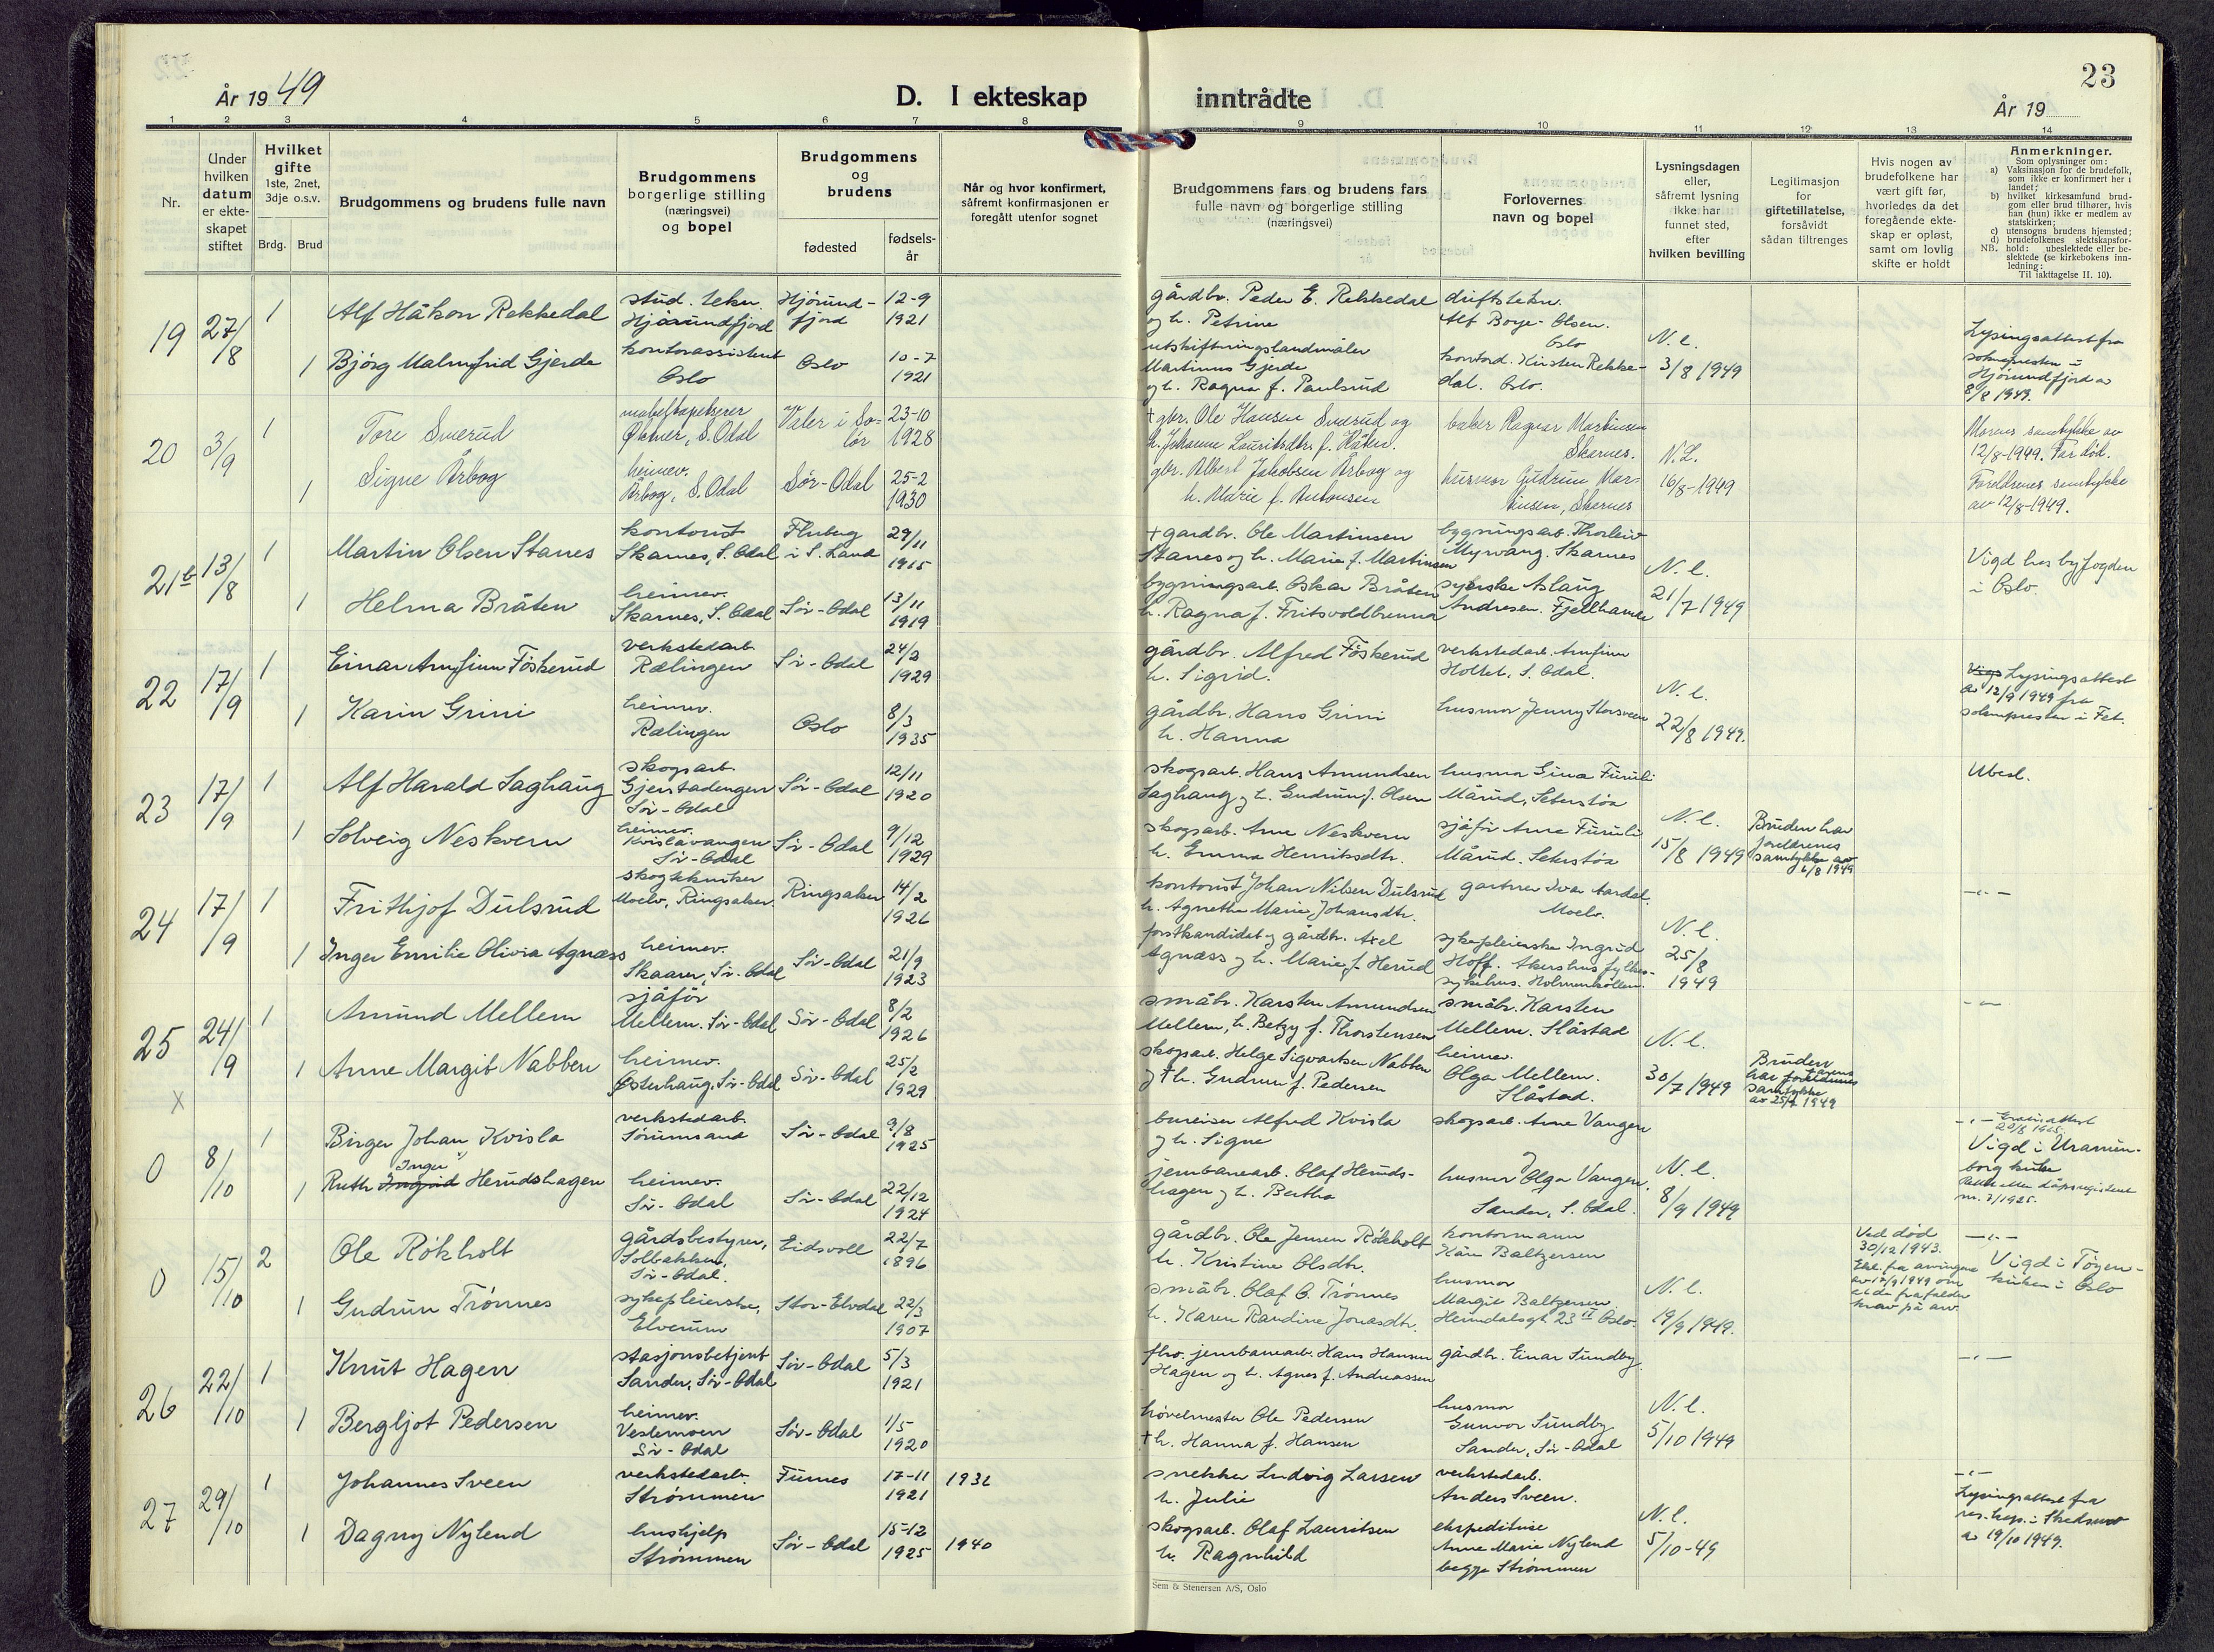 23
År 1949
D. I ekteskap inntrådte
År 19
1 2 3 4 5 6 7 8 9 10 11 12 13 14
Nr.
Under hvilken datum er ekteskapet stiftet
Hvilket gifte 1ste, 2net, 3dje o.s.v.
Brdg. Brud
Brudgommens og brudens fulle navn
Brudgommens borgerlige stilling (næringsvei) og bopel
Brudgommens og brudens
fødested
fødselsår
Når og hvor konfirmert, såfremt konfirmasjonen er foregått utenfor sognet
Brudgommens fars og brudens fars fulle navn og borgerlige stilling (næringsvei)
Forlovernes navn og bopel
Lysningsdagen eller, såfremt lysning ikke har funnet sted, efter hvilken bevilling
Legitimasjon for giftetillatelse, forsåvidt sådan tiltrenges
Hvis nogen av brudefolkene har vært gift før, hvorledes da det foregående ekteskap er opløst, samt om lovlig skifte er holdt
Anmerkninger.
Som oplysninger om:
a) Vaksinasjon for de brudefolk, som ikke er konfirmert her i landet;
b) hvilket kirkesamfund brudgom eller brud tilhører, hvis han (hun) ikke er medlem av statskirken;
c) utensogns brudens hjemsted;
d) brudefolkenes slektskapsforhold: ubeslektede eller beslektede (se kirkebokens innledning:
NB. Til iakttagelse II. 10).
19 27/8 1 Alf Håkon Rekkedal
stud. tekn. Hjørundfjord
Hjørundfjord 12-9 1921
gårdbr. Peder E. Rekkedal
og h. Petrine
driftstekn. Alf Boye-Olsen. Oslo
1 Bjørg Malmfrid Gjerde
kontorassistent Oslo
Oslo 10-7 1921
utskiftningslandmåler Martinus Gjerde
og h. Ragna f. Paulsrud
kontord. Kirsten Rekkedal. Oslo.
N. l. 3/8 1949
Lysingsattest fra soknepresten i Hjørundfjord av 8/8 1949.
20 3/9 1 Tore Sverud
møbeltapetserer
S. Odal
Våler i Solør 23-10 1928
† gbr. Ole Hansen Sverud og
h. Johanne Lauritsdtr. f. Håten.
baker Ragnar Martinsen Skarnes.
1 Signe Årbog
heimev. Årbog, S. Odal
Sør-Odal 25-2 1930
gbr. Albert Jakobsen Årbog og
h. Marie f. Antonsen
husmor Gudrun Martinsen, Skarnes
N. L. 16/8-1949
Morens samtykke av 12/8-1949. Far død.
Foreldrenes samtykke av 12/8-1949.
21b 13/8 1 Martin Olsen Stanes
kontorist Skarnes, S. Odal
Fluberg i S. Land 29/11 1915
† gardbr. Ole Martinsen
Stanes og h. Marie f. Martinsen
bygningsarb. Thorleiv Myrvang. Skarnes
1 Helma Bråten
heimev. Skarnes, S. Odal
Sør-Odal 13/11 1919
bygningsarb. Oskar Bråten
h. Ragna f. Fritsvoldbrenna
syerske Aslaug Andresen. Fjellhamar
N. l. 21/7 1949
Vigd hos byfogden i Oslo.
22 17/9 1 Einar Arnfinn Føskerud
verkstedarb. Rælingen
Sør-Odal 24/2 1929
gårdbr. Alfred Føskerud
h. Sigrid.
verkstedarb. Arnfinn Holtet, S. Odal.
1 Karin Grini
heimev. Rælingen
Oslo 8/3 1935
gårdbr. Hans Grini
h. Hanna
husmor Jenny Storsveen
N. l. 22/8 1949.
Lysingsattest av 12/9 1949 fra soknepresten i Fet.
23 17/9 1 Alf Harald Saghaug
skogsarb. Gjerstadengen Sør-Odal
Sør-Odal 12/11 1920
skogsarb. Hans Amundsen
Saghaug og h. Gudrun f. Olsen
husmor Gina Furuli Mårud, Seterstøa
Ubesl.
1 Solveig Neskvern
heimev. Kvislavangen Sør-Odal
Sør-Odal 9/12 1929
skogsarb. Arne Neskvern
h. Emma Henriksdtr.
sjåfør Arne Furuli Mårud. Seterstøa
N. l. 15/8 1949
Bruden har foreldrenes samtykke av 6/8 1949
24 17/9 1 Frithjof Dulsrud
skogtekniker Moelv, Ringsaker.
Ringsaker 14/2 1926
kontorist Johan Nilsen Dulsrud
h. Agnethe Marie Johansdtr.
gartner Ivar Aardal. Moelv.
— " —
1 Inger Emilie Olivia Agnæss
heimev. Skaarer, Sør-Odal
Sør-Odal 21/9 1923
forstkandidat og gårdbr. Axel
Agnæss og h. Marie f. Herud
sykepleierske Ingrid Hoff. Akershus fylkessykehus. Holmenkollen.
N. l. 25/8 1949
25 24/9 1 Amund Mellem
sjåfør Mellem. Sør-Odal
Sør-Odal 8/2 1926
småbr. Karsten Amundsen
Mellem, h. Betzy f. Thorstensen
småbr. Karsten Mellem. Slåstad
— " —
1 Anne Margit Nabben
heimev. Østerhaug, Sør-Odal
Sør-Odal 25/2 1929
skogsarb. Helge Sigvartsen Nabben
og † h. Gudrun f. Pedersen
heimev. Olga Mellem. Slåstad.
N. l. 30/7 1949
Bruden har farens foreldrenes samtykke av 25/7 1949
X
0 8/10 1 Birger Johan Kvisla
verkstedarb. Sørumsand
Sør-Odal 9/8 1925
bureiser Alfred Kvisla
og h. Signe
skogsarb. Arne Vangen
1 Ruth Ingrid Inger Herudshagen
heimev. Sør-Odal
Sør-Odal 22/12 1924
jernbanearb. Olaf Herudshagen og h. Bertha
husmor Olga Vangen, Sander, S. Odal.
N. l. 8/9 1949
Vigd i Uranienborg kirke
Rettet etter dåpsregisteret nr. 7/1925.
0 15/10 2 Ole Røkholt
gårdsbestyrer, Solbakken, Sør-Odal.
Eidsvoll 22/7 1896
gårdbr. Ole Jensen Røkholt
h. Kristine Olsdtr.
kontormann Kåre Baltzersen
Ved død 30/12 1943.
Erkl. fra arvingene av 17/9 1949 om at de frafaller krav på arv.
— " — Vigd i Tøyenkirken i Oslo
1 Gudrun Trønnes
sykepleierske, Elverum
Stor-Elvdal 22/3 1907
småbr. Olaf O. Trønnes
h. Karen Randine Jonasdtr.
husmor Margit Baltzersen
Heimdalsgt. 23 II Oslo.
N. l. 19/9 1949.
26 22/10 1 Knut Hagen
stasjonsbetjent Sander, Sør-Odal
Sør-Odal 5/3 1921
fhv. jernbanearb. Hans Hansen
Hagen og h. Agnes f. Andreassen
gårdbr. Einar Sundby.
— " —
1 Bergljot Pedersen
heimev. Vestemoen Sør-Odal
Sør-Odal 1/5 1920
høvelmester Ole Pedersen
† h. Hanna f. Hansen
husmor Gunvor Sundby Sander, Sør-Odal
N. l. 5/10 1949
27 29/10 1 Johannes Sveen
verkstedarb. Strømmen
Furnes 17-11 1921 1936
snekker Ludvig Larsen
h. Julie
verkstedarb. Anders Sveen.
— " —
1 Dagny Nylend
hushjelp Strømmen
Sør-Odal 15-12 1925 1940
skogsarb. Olaf Lauritsen
h. Ragnhild
ekspeditrise Anne Marie Nylend
begge Strømmen
N. l. 5/10-49
Lysingsattest fra res. kap. i Skedsmo av 19/10 1949.
Sem & Stenersen A/S, Oslo